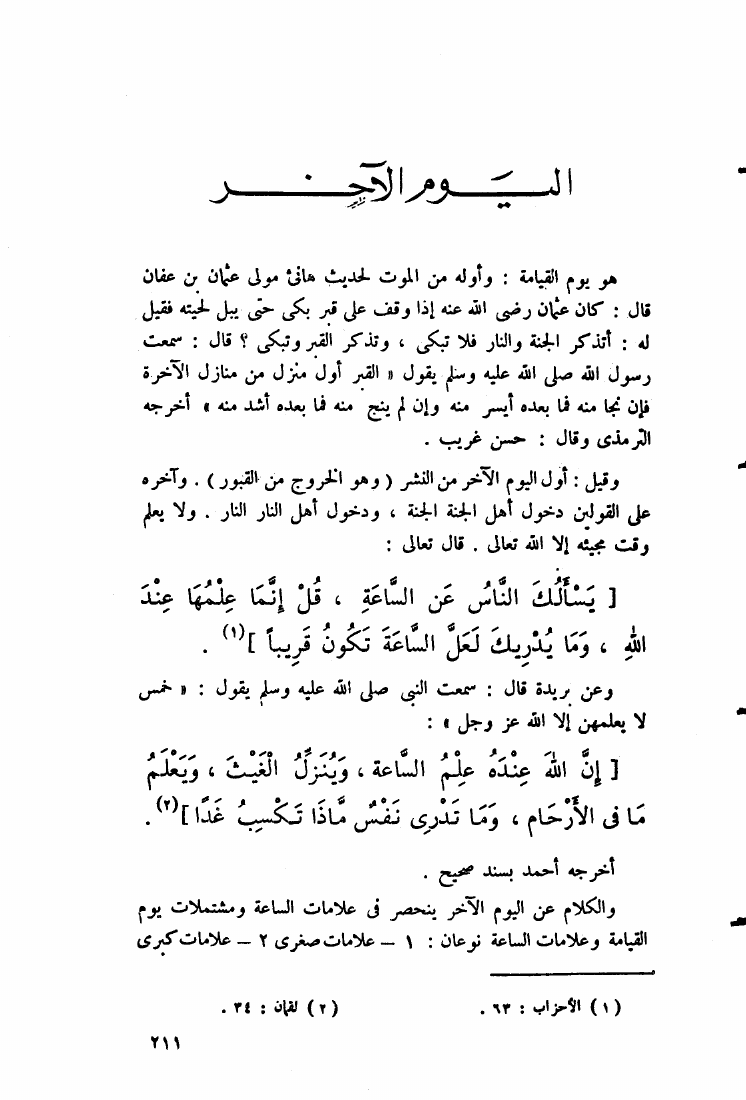 اليوم الآخر
هو يوم القيامة : وأوله من الموت لحديث هانئ مولى عثمان بن عفان
قال : كان عثمان رضى الله عنه إذا وقف على قبر بكى حتى يبل لحيته فقيل
له : أتذكر الجنة والنار فلا تبكى ، وتذكر القبر وتبكى ؟ قال : سمعت
رسول الله صلى الله عليه وسلم يقول « القبر أول منزل من منازل الآخرة
فإن نجا منه فما بعده أيسر منه وإن لم ينج منه فما بعده أشد منه » أخرجه
الترمذى وقال : حسن غريب .
وقيل : أول اليوم الآخر من النشر ( وهو الخروج من القبور ) . وآخره
على القولين دخول أهل الجنة الجنة ، ودخول أهل النار النار . ولا يعلم
وقت مجيئه إلا الله تعالى . قال تعالى :
[ يَسْأَلُكَ النَّاسُ عَنِ السَّاعَةِ ، قُلْ إِنَّمَا عِلْمُهَا عِنْدَ
اللهِ ، وَمَا يُدْرِيكَ لَعَلَّ السَّاعَةَ تَكُونُ قَرِيباً ](١) .
وعن بريدة قال : سمعت النبى صلى الله عليه وسلم يقول : « خمس
لا يعلمهن إلا الله عز وجل » :
[ إِنَّ اللهَ عِنْدَهُ عِلْمُ السَّاعة ، وَيُنَزِّلُ الْغَيْثَ ، وَيَعْلَمُ
مَا فى الأَرْحَام ، وَمَا تَدْرِى نَفْسٌ مَّاذَا تَكْسِبُ غَدًا ](٢) .
أخرجه أحمد بسند صحيح .
والكلام عن اليوم الآخر ينحصر فى علامات الساعة ومشتملات يوم
القيامة وعلامات الساعة نوعان : ١ – علامات صغرى ٢ – علامات كبرى
(١) الأحزاب : ٦٣ . (٢) لقمان : ٣٤ .
٢١١